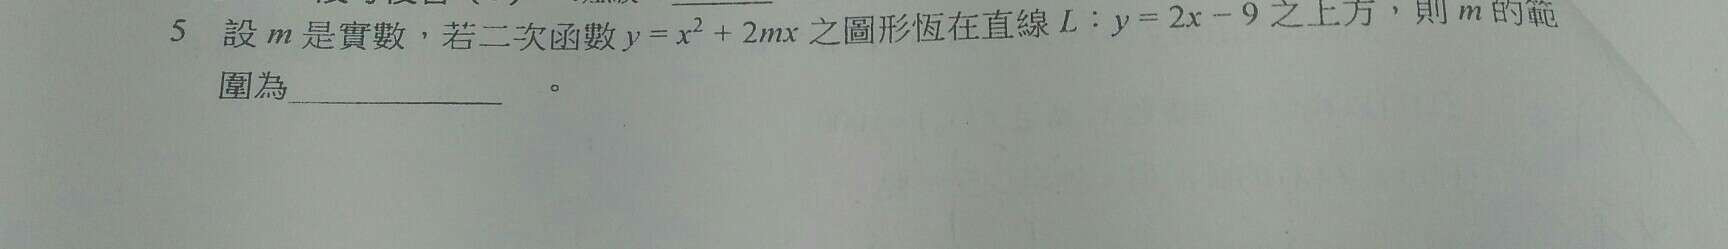 5 設 m 是實數，若二次函數 y = x² + 2mx 之圖形恆在直線 L：y = 2x − 9 之上方，則 m 的範
圍為__________。